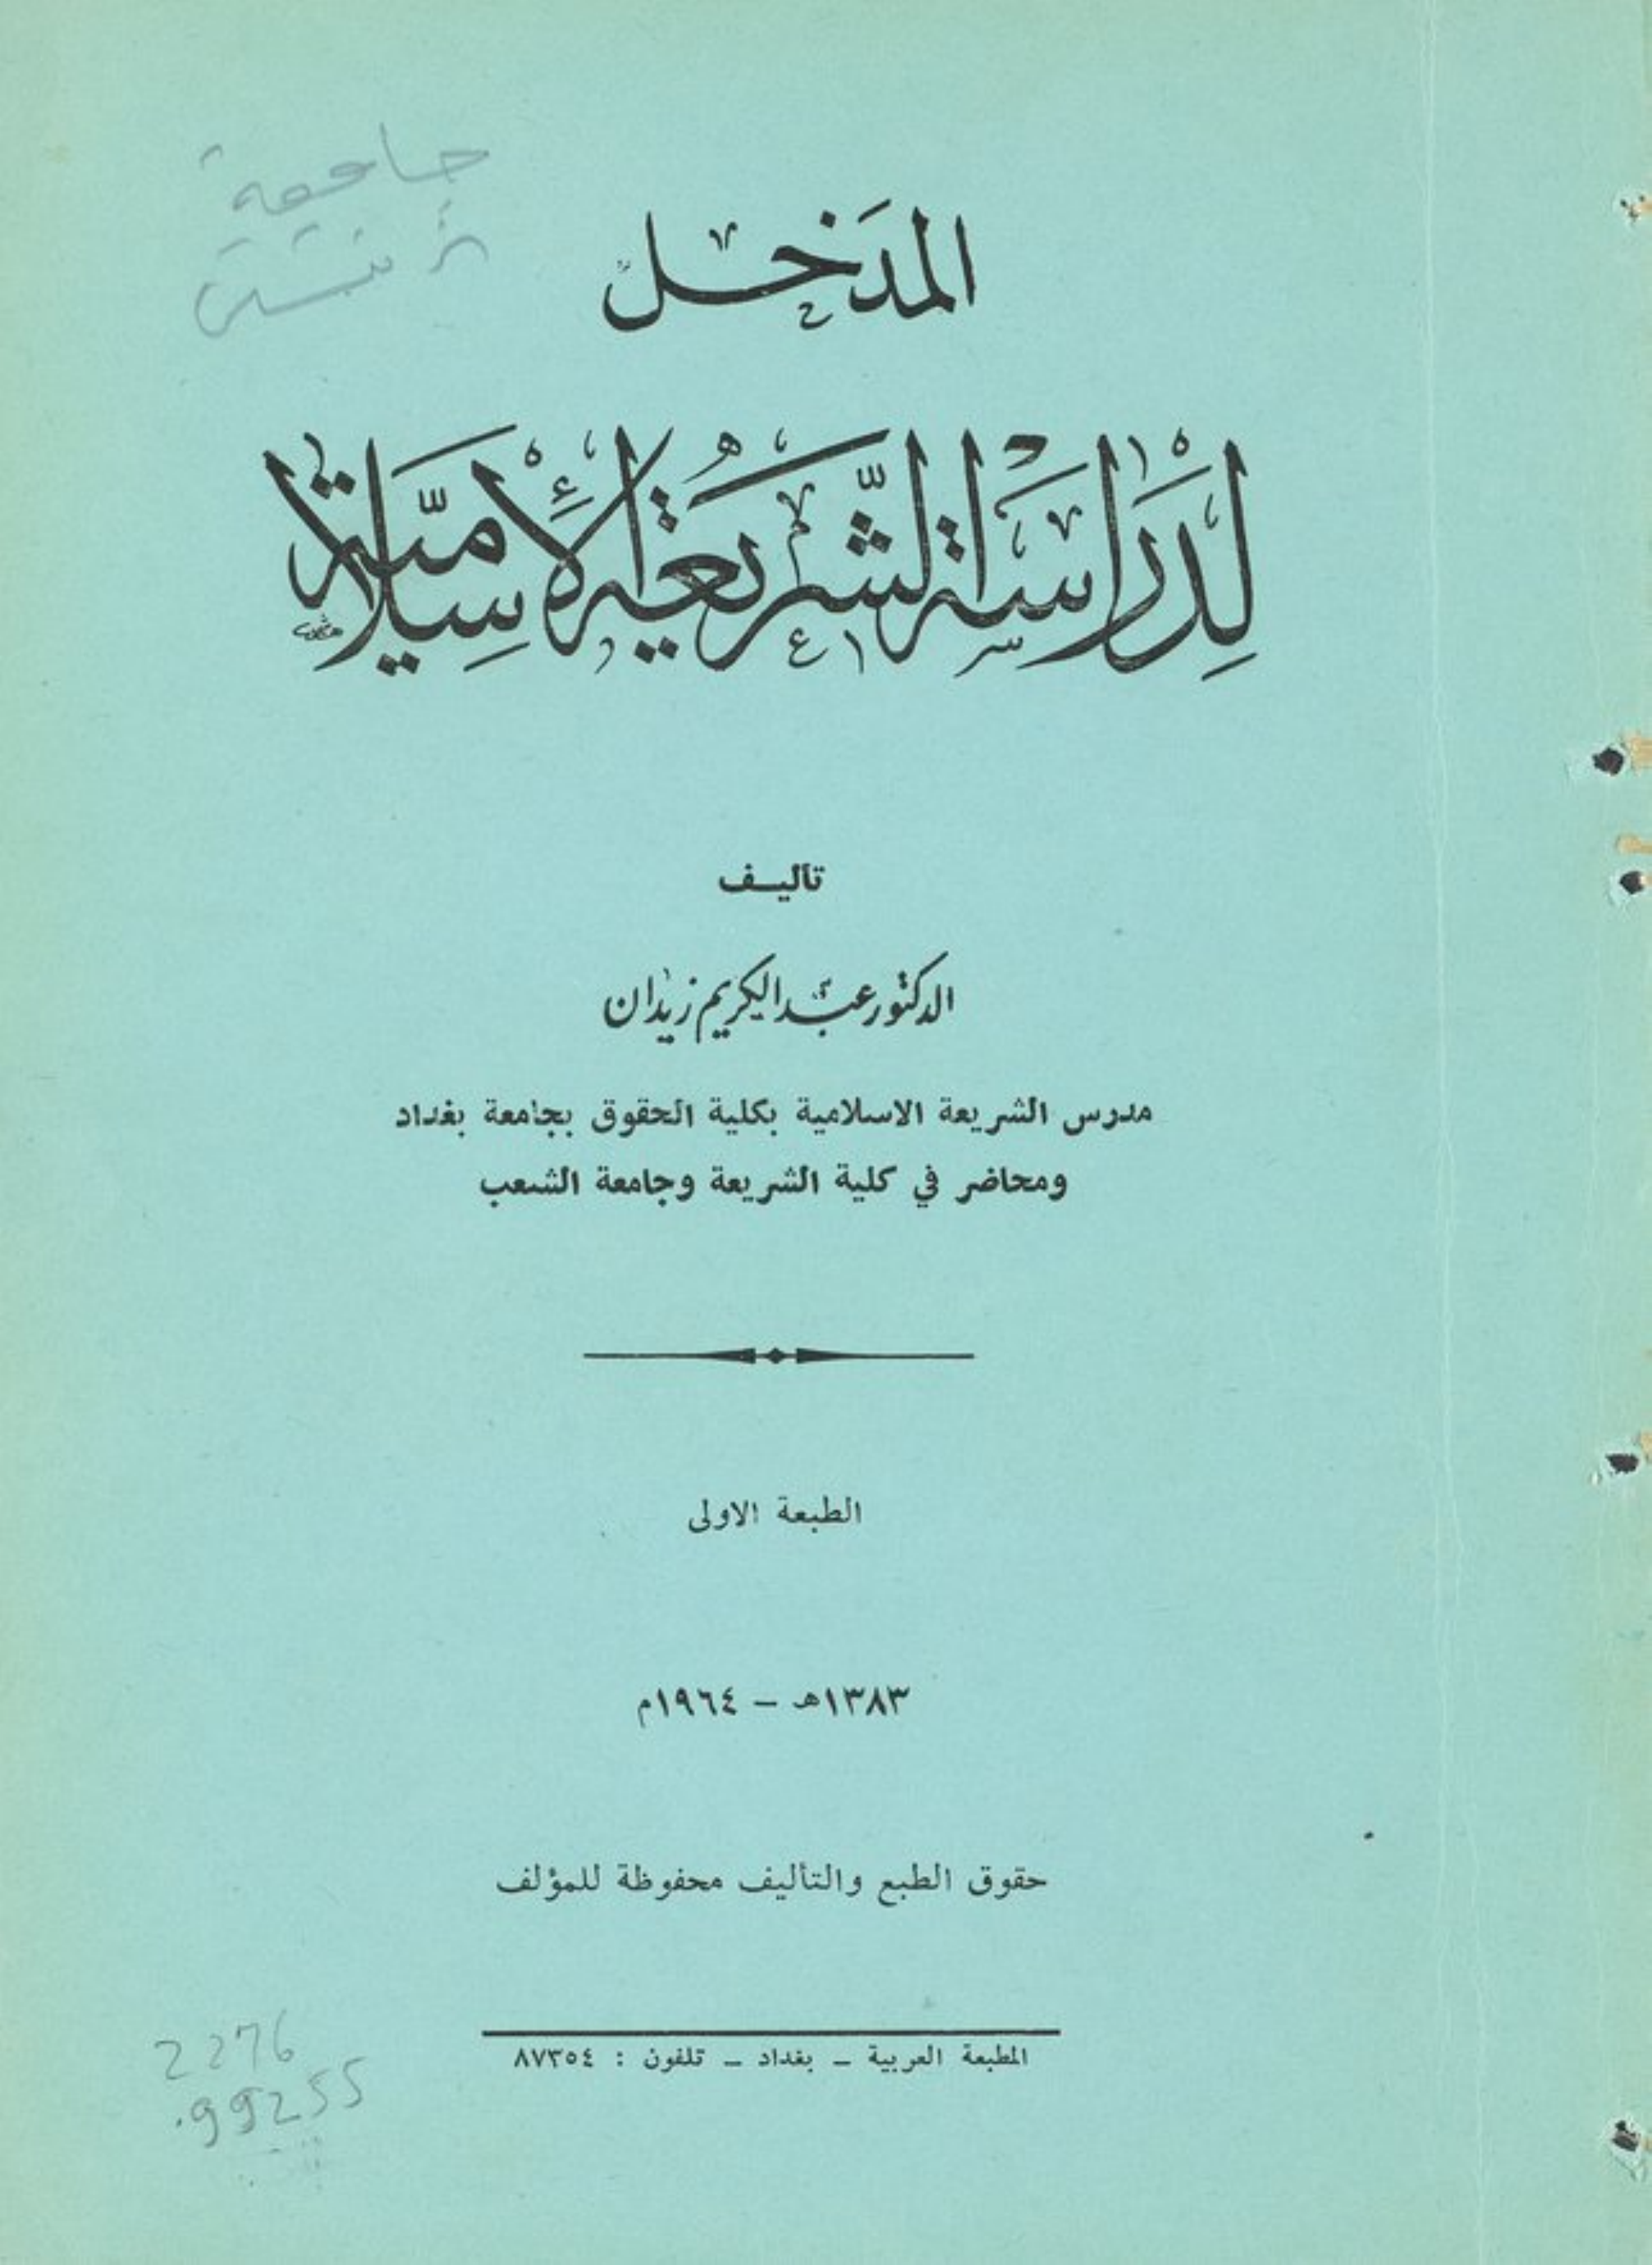 جامعة
برنستن
المدَخل
لِدرَاسَة الشَّريعَة الإسِلاميَّة
تأليف
الدكتور عبد الكريم زيدان
مدرس الشريعة الاسلامية بكلية الحقوق بجامعة بغداد
ومحاضر في كلية الشريعة وجامعة الشعب
الطبعة الاولى
١٣٨٣هـ – ١٩٦٤م
حقوق الطبع والتأليف محفوظة للمؤلف
المطبعة العربية – بغداد – تلفون : ٨٧٣٥٤
2276
.99255